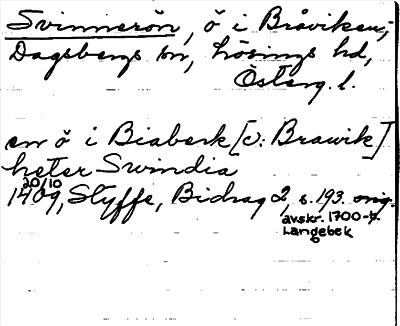 Svinnerön, ö i Bråviken,
Dagsbergs sn, Lösings hd,
Österg. l.
en ö i Biaberk [ɔ: Brawik]
heter Swindia
20/10
1409, Styffe, Bidrag 2, s. 193. orig.
avskr. 1700-t
Langebek